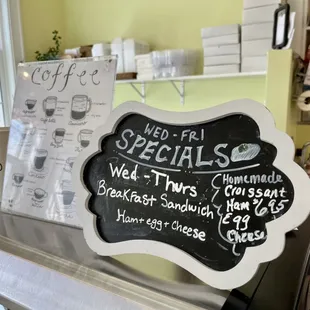 Coffee
WED-FRI
SPECIALS
Wed-Thurs
Breakfast Sandwich
Ham+egg+Cheese
Homemade
Croissant
Ham $6.95
Egg
Cheese